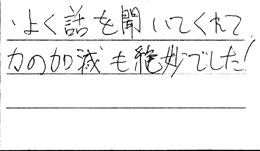 ・よく話を聞いてくれて
力の加減も絶妙でした!